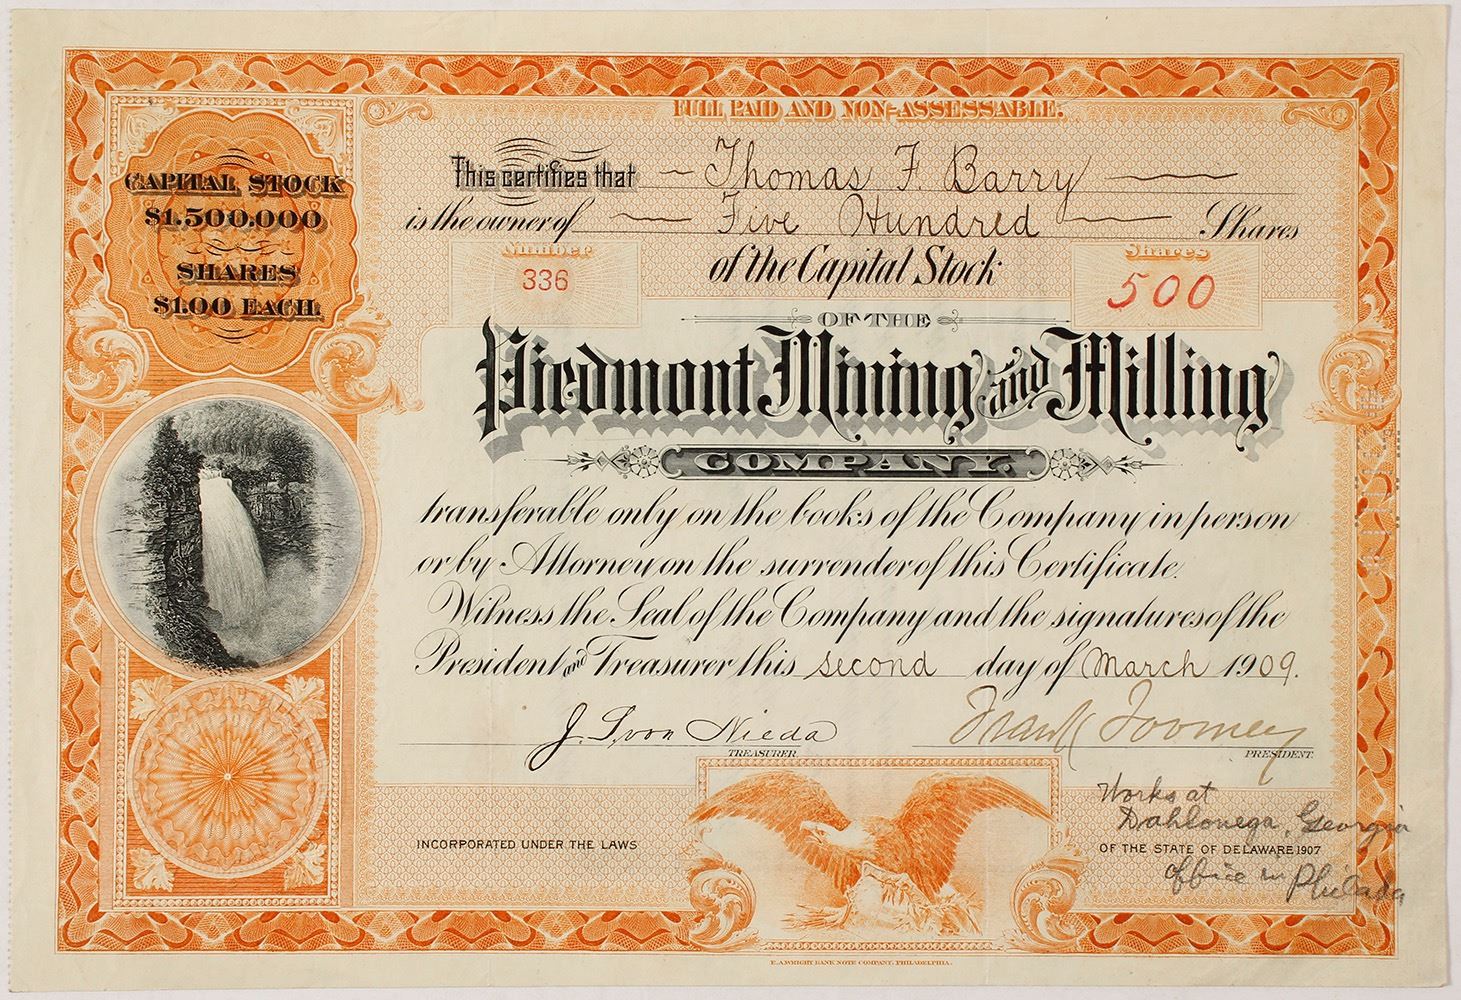 FULL PAID AND NON-ASSESSABLE.
CAPITAL STOCK
$1.500.000
SHARES
$1.00 EACH.
This certifies that Thomas F. Barry
is the owner of Five Hundred Shares
Number
336
of the Capital Stock
Shares
500
OF THE
Piedmont Mining and Milling
COMPANY.
transferable only on the books of the Company in person
or by Attorney on the surrender of this Certificate.
Witness the Seal of the Company and the signatures of the
President and Treasurer this second day of March 1909.
J. S. von Nieda
TREASURER
Frank Toomey
PRESIDENT.
Works at
Dahlonega, Georgia
INCORPORATED UNDER THE LAWS
OF THE STATE OF DELAWARE 1907
office in Philada
E.A.WRIGHT BANK NOTE COMPANY. PHILADELPHIA.